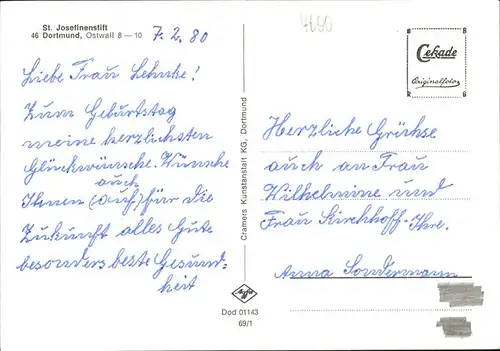 St. Josefinenstift
46 Dortmund, Ostwall 8 — 10
7. 2. 80
Liebe Frau Lehnke!
Zum Geburtstag
meine herzlichsten
Glückwünsche. Wünsche
auch
Ihnen (auch) für die
Zukunft alles Gute
besonders beste Gesund=
heit
Cramers Kunstanstalt KG, Dortmund
Agfa
Dod 01143
69/1
4600
Cekade
Originalfoto
Herzliche Grüße
auch an Frau
Wilhelmine und
Frau Kirchhoff-Ihre.
Anna Sondermann